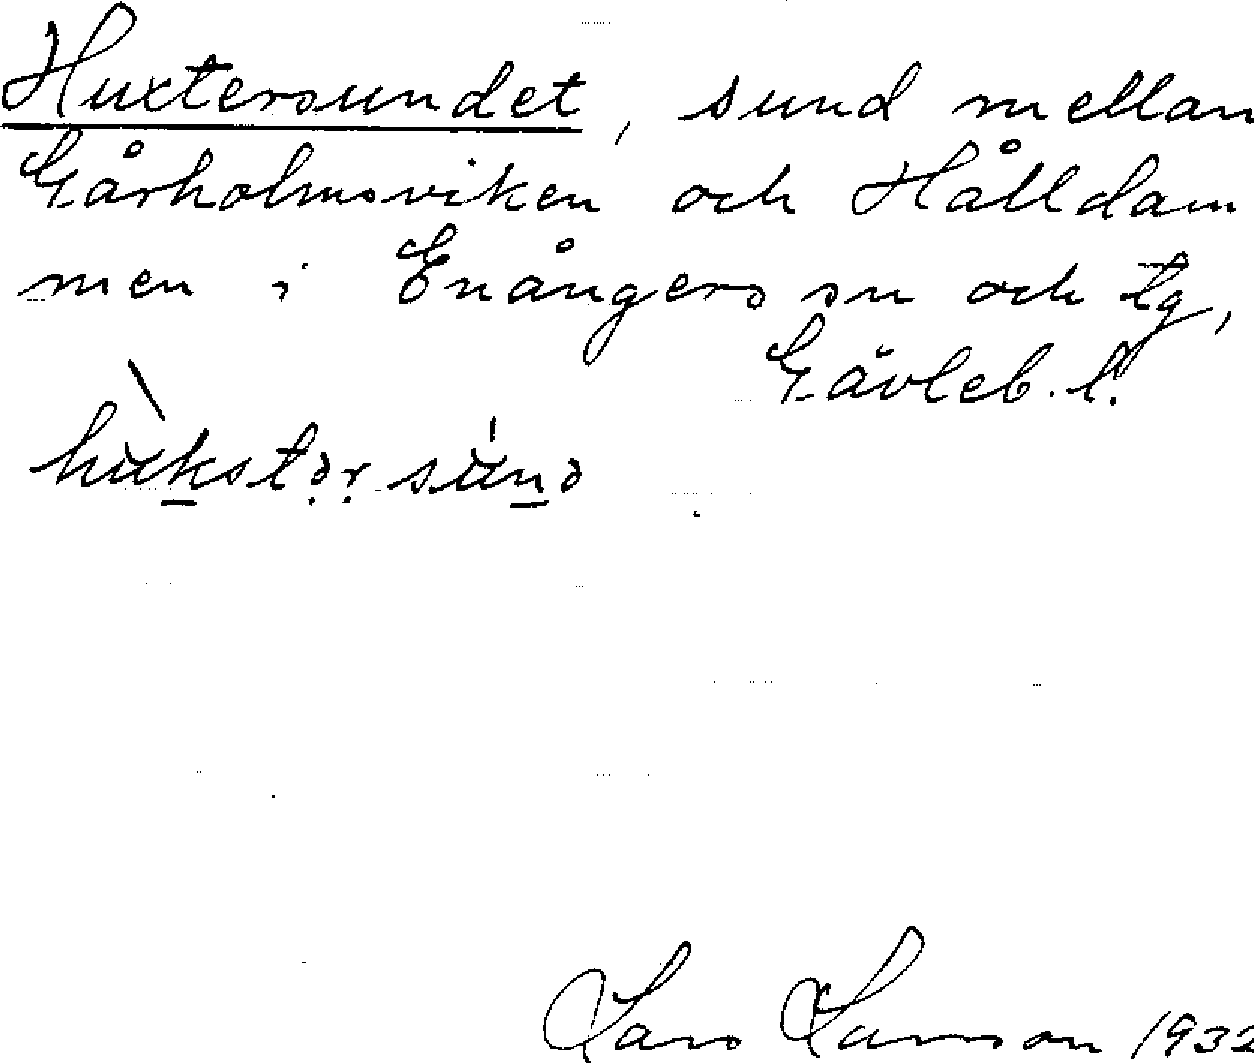 Huxtersundet, sund mellan
Gårholmsviken och Hålldam
men i Enångers sn och tg,
Gävleb. l.
hùkstər súnə
Lars Larsson 1932